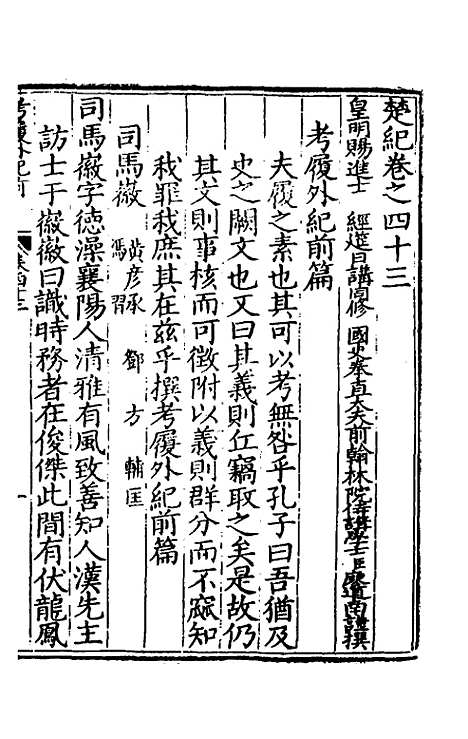 楚紀卷之四十三
皇明賜進士 經筵日講官修 國史奉直大夫前翰林院侍講學士臣廖道南謹撰
考履外紀前篇
夫履之素也其可以考無咎乎孔子曰吾猶及
史之闕文也又曰其義則丘竊取之矣是故仍
其文則事核而可徵附以義則群分而不踰知
我罪我庶其在茲乎撰考履外紀前篇
司馬徽 黃彥承 鄧方 輔匡
馮習
司馬徽字德澡襄陽人清雅有風致善知人漢先主
訪士于徽徽曰識時務者在俊傑此間有伏龍鳳
考履外紀前 卷四十三 一